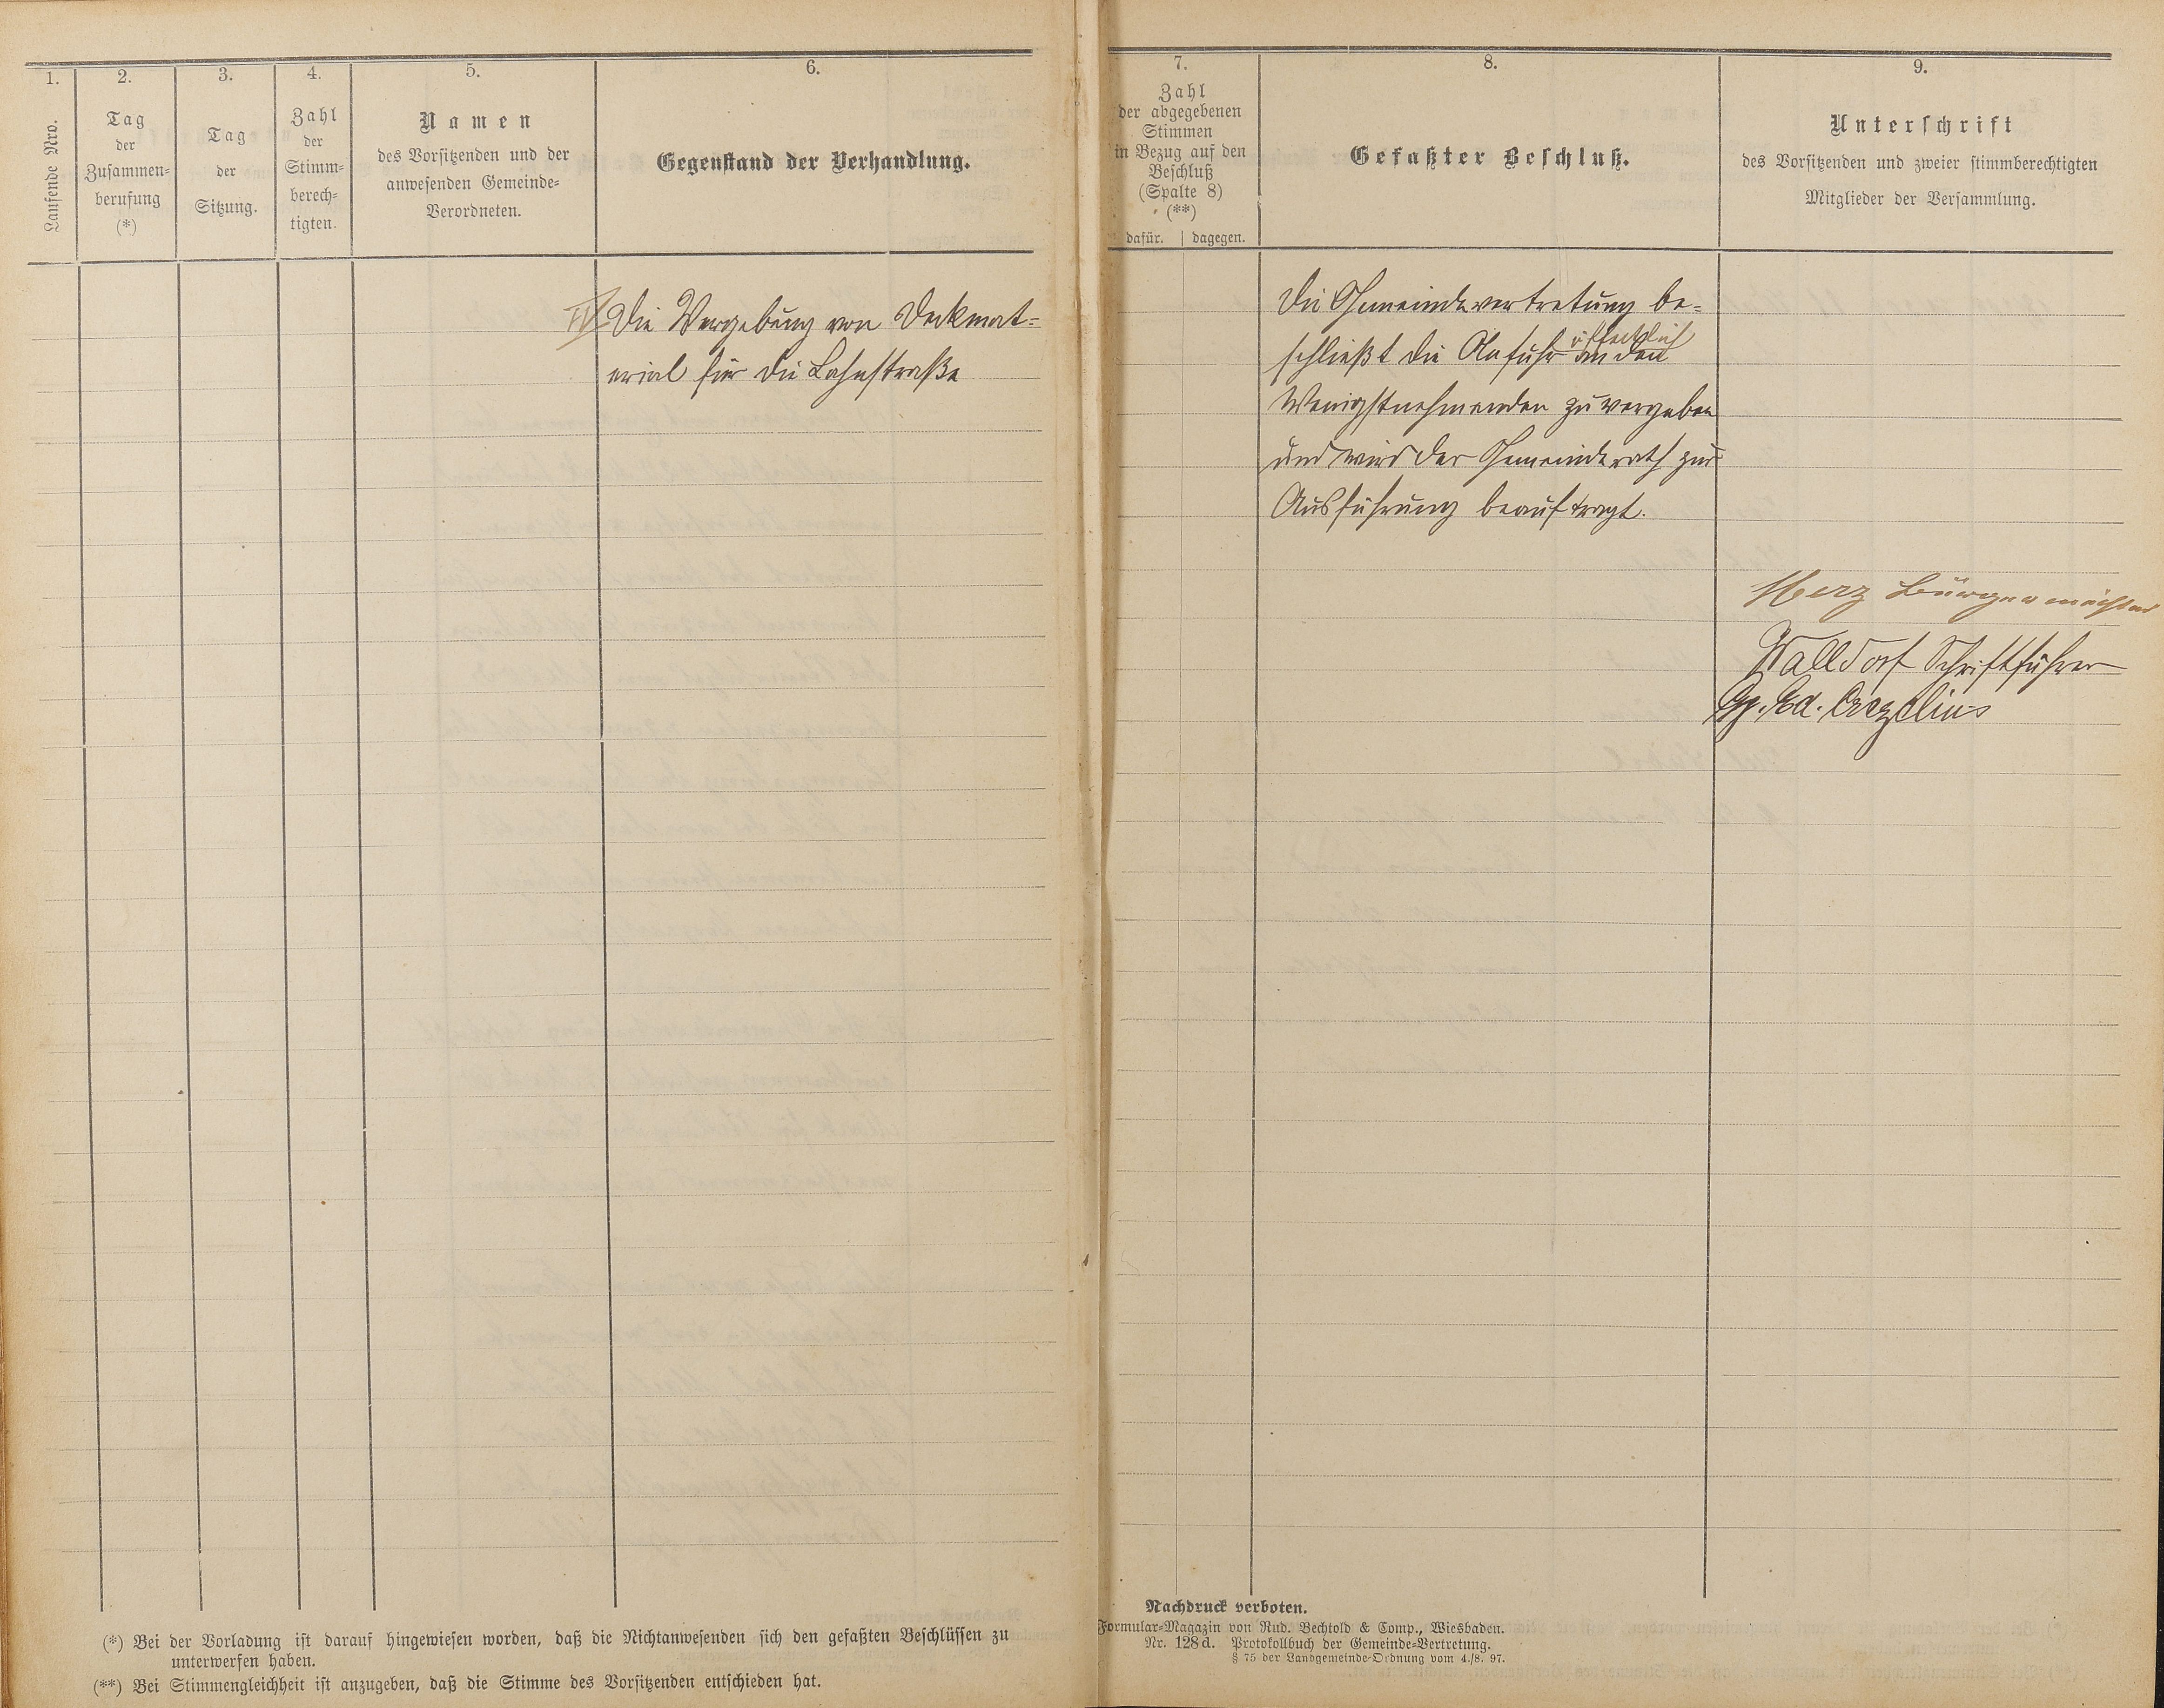 1.
Laufende Nro.
2.
Tag
der
Zusammen-
berufung
(*)
3.
Tag
der
Sitzung.
4.
Zahl
der
Stimm-
berech-
tigten.
5.
Namen
des Vorsitzenden und der
anwesenden Gemeinde-
Verordneten.
6.
Gegenstand der Verhandlung.
7.
Zahl
der abgegebenen
Stimmen
in Bezug auf den
Beschluß
(Spalte 8)
(**)
dafür. | dagegen.
8.
Gefaßter Beschluß.
9.
Unterschrift
des Vorsitzenden und zweier stimmberechtigten
Mitglieder der Versammlung.
IV Die Vergebung von Deckmat-
erial für die Lahnstraße
Die Gemeindevertretung be-
schließt die Anfuhr öffentlich an den
Wenigstnehmenden zu vergeben
und wird der Gemeinderath zur
Ausführung beauftragt.
Herz Bürgermeister
Walldorf Schriftführer
Ed.
(*) Bei der Vorladung ist darauf hingewiesen worden, daß die Nichtanwesenden sich den gefaßten Beschlüssen zu
unterwerfen haben.
(**) Bei Stimmengleichheit ist anzugeben, daß die Stimme des Vorsitzenden entschieden hat.
Nachdruck verboten.
Formular-Magazin von Rud. Bechtold & Comp., Wiesbaden.
Nr. 128d. Protokollbuch der Gemeinde-Vertretung.
§ 75 der Landgemeinde-Ordnung vom 4./8. 97.